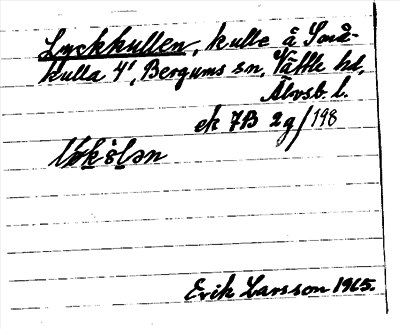 Lyckkullen, kulle å Små-
kulla 4¹, Bergums sn, Vättle hd,
Älvsb. l.
ek 7B 2g/198
Erik Larsson 1965.